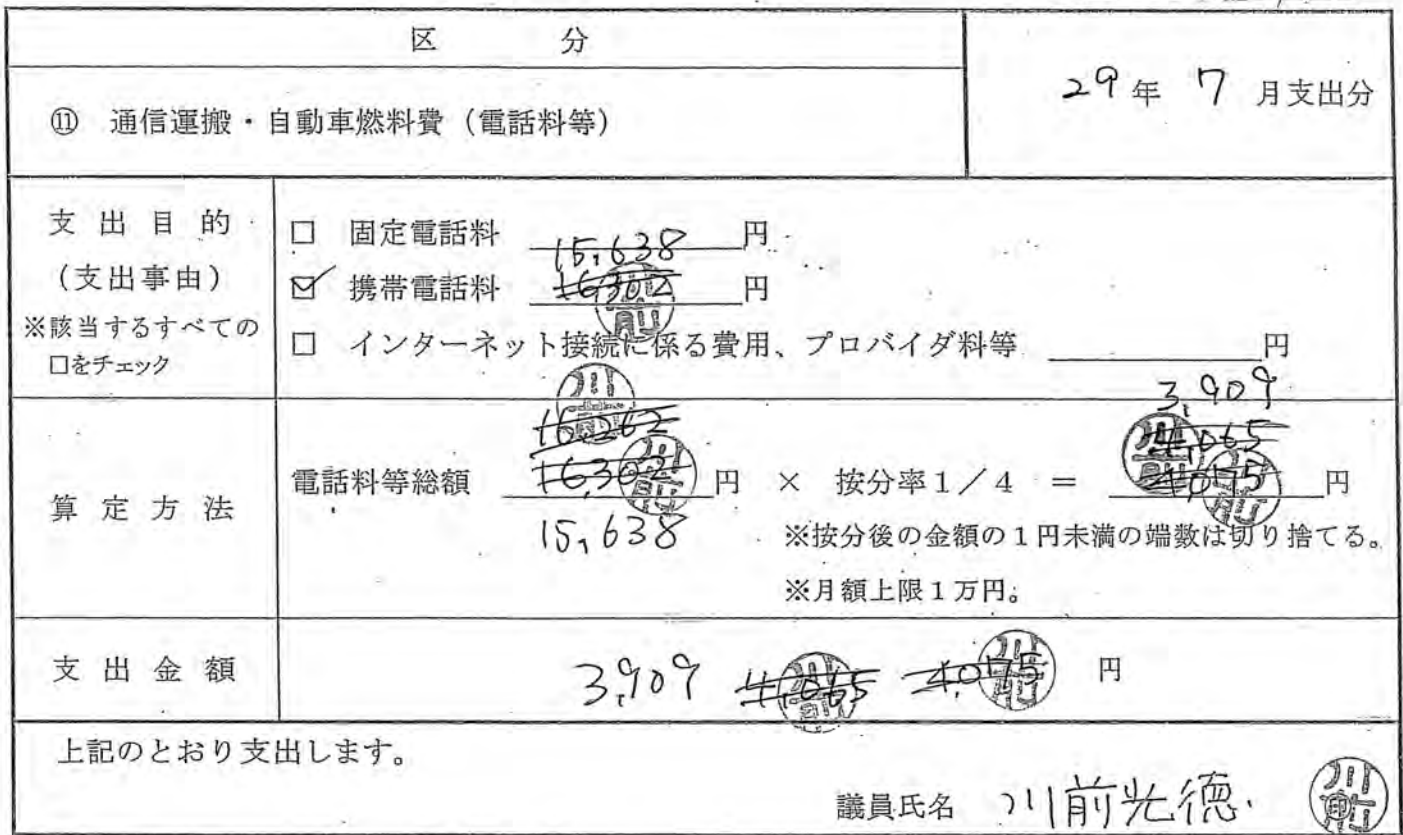 区 分
29年 7月支出分
⑪ 通信運搬・自動車燃料費（電話料等）
支出目的
（支出事由）
※該当するすべての
口をチェック
□ 固定電話料 円
15,638
☑ 携帯電話料 16302 円
□ インターネット接続に係る費用、プロバイダ料等 円
3,909
16,262 4,065
電話料等総額 16,302 円 × 按分率1／4 = 4,075 円
算定方法
15,638
※按分後の金額の1円未満の端数は切り捨てる。
※月額上限1万円。
支出金額 3,909 4,065 4,075 円
上記のとおり支出します。
議員氏名 川前光徳
川前